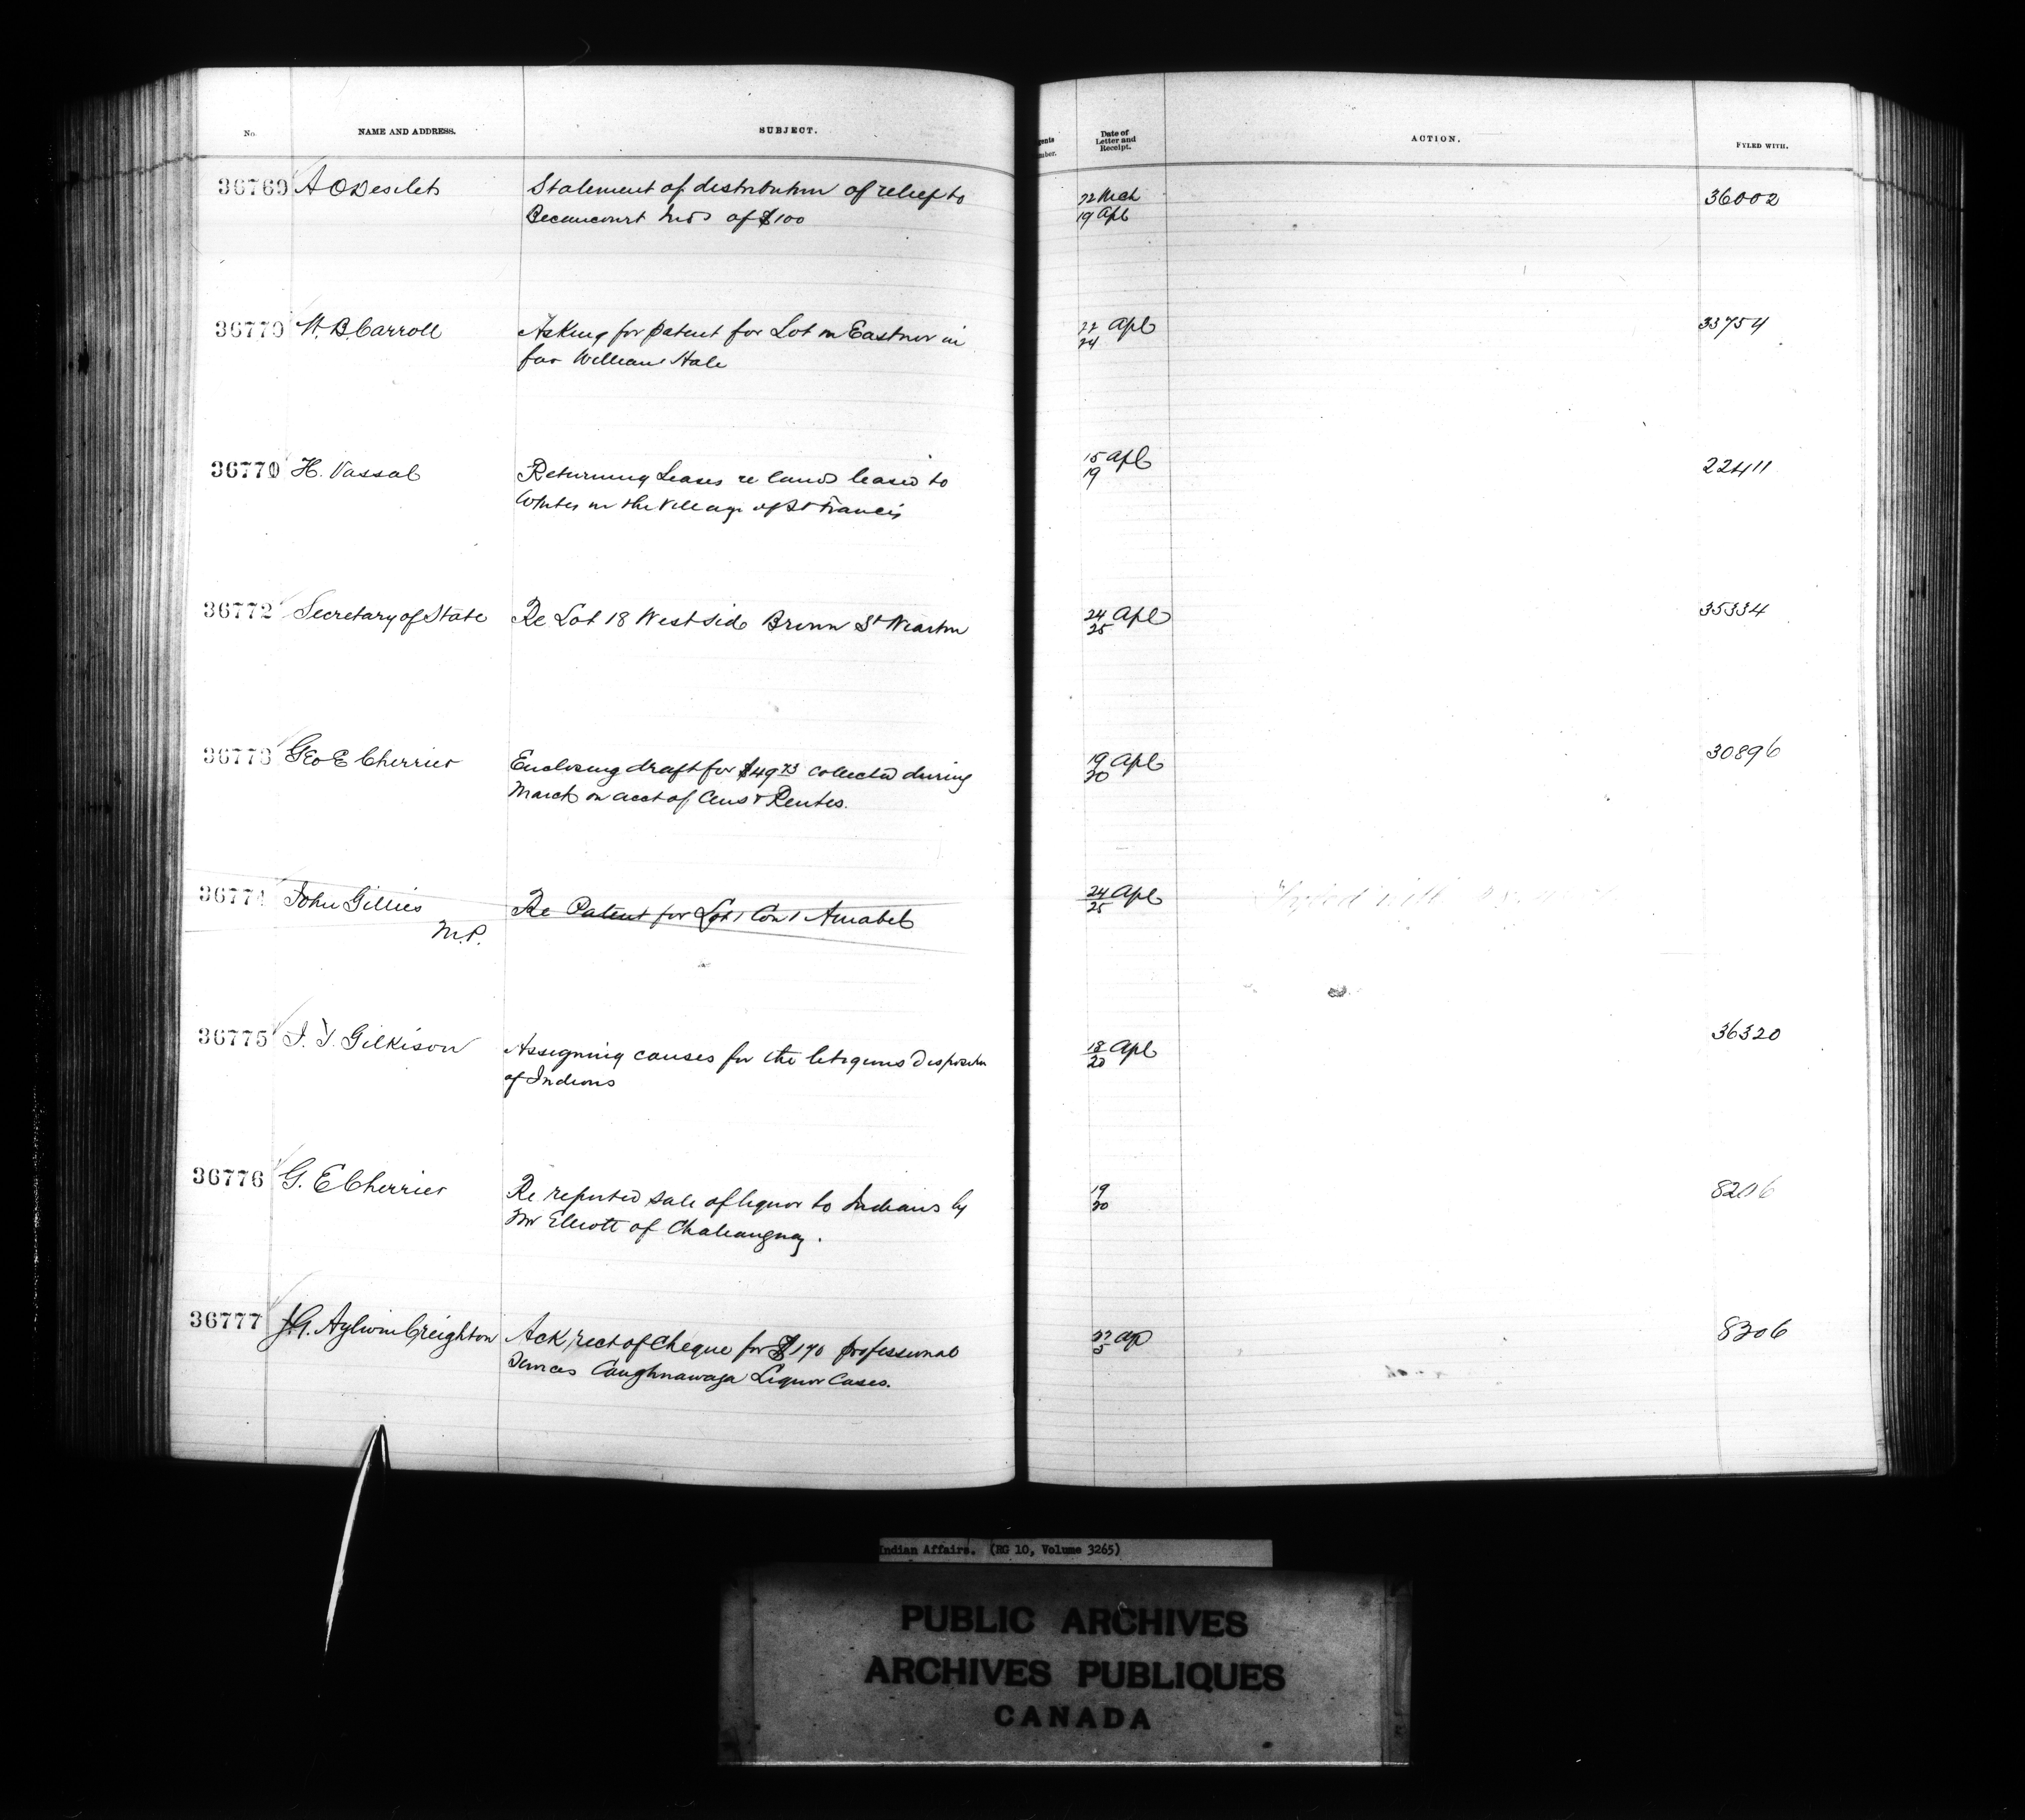 No. NAME AND ADDRESS. SUBJECT. gents mber. Date of Letter and Receipt. ACTION. FYLED WITH.
36769 A O Desilets Statement of distribution of relief to 22 Mch 36002
Becancourt Inds of $100 19 Apl
36770 W. B. Carroll Asking for patent for Lot in Eastnor in 22 Apl 33754
fav William Hale 24
36770 H. Vassal Returning Leases re lands leased to 15 Apl 22411
Whites in the Village of St Francis 19
36772 Secretary of State Re Lot 18 West side Brown St Wiarton 24 Apl 35334
25
36773 Geo E Cherrier Enclosing draft for $49 73 collected during 19 Apl 30896
March on acct of Cens & Rentes. 20
36774 John Gillies Re Patent for Lot 1 Con 1 Amabel 24 Apl Fyled with
M.P. 25
36775 J. T. Gilkison Assigning causes for the litigious disposition 18 Apl 36320
of Indians 20
36776 G. E Cherrier Re reported sale of liquor to Indians by 19 8206
Mr Elliott of Chateauguay. 20
36777 J.G. Aylwin Creighton Ack rect of Cheque for $170 professional 22 Ap 8206
Services Caughnawaga Liquor Cases. 5
Indian Affairs. (RG 10, Volume 3265)
PUBLIC ARCHIVES
ARCHIVES PUBLIQUES
CANADA